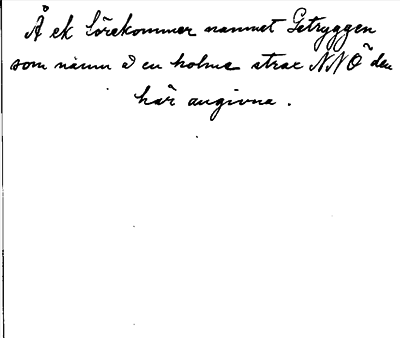 Å ek förekommer namnet Getryggen
som namn å en holme strax NNÖ den
här angivna.